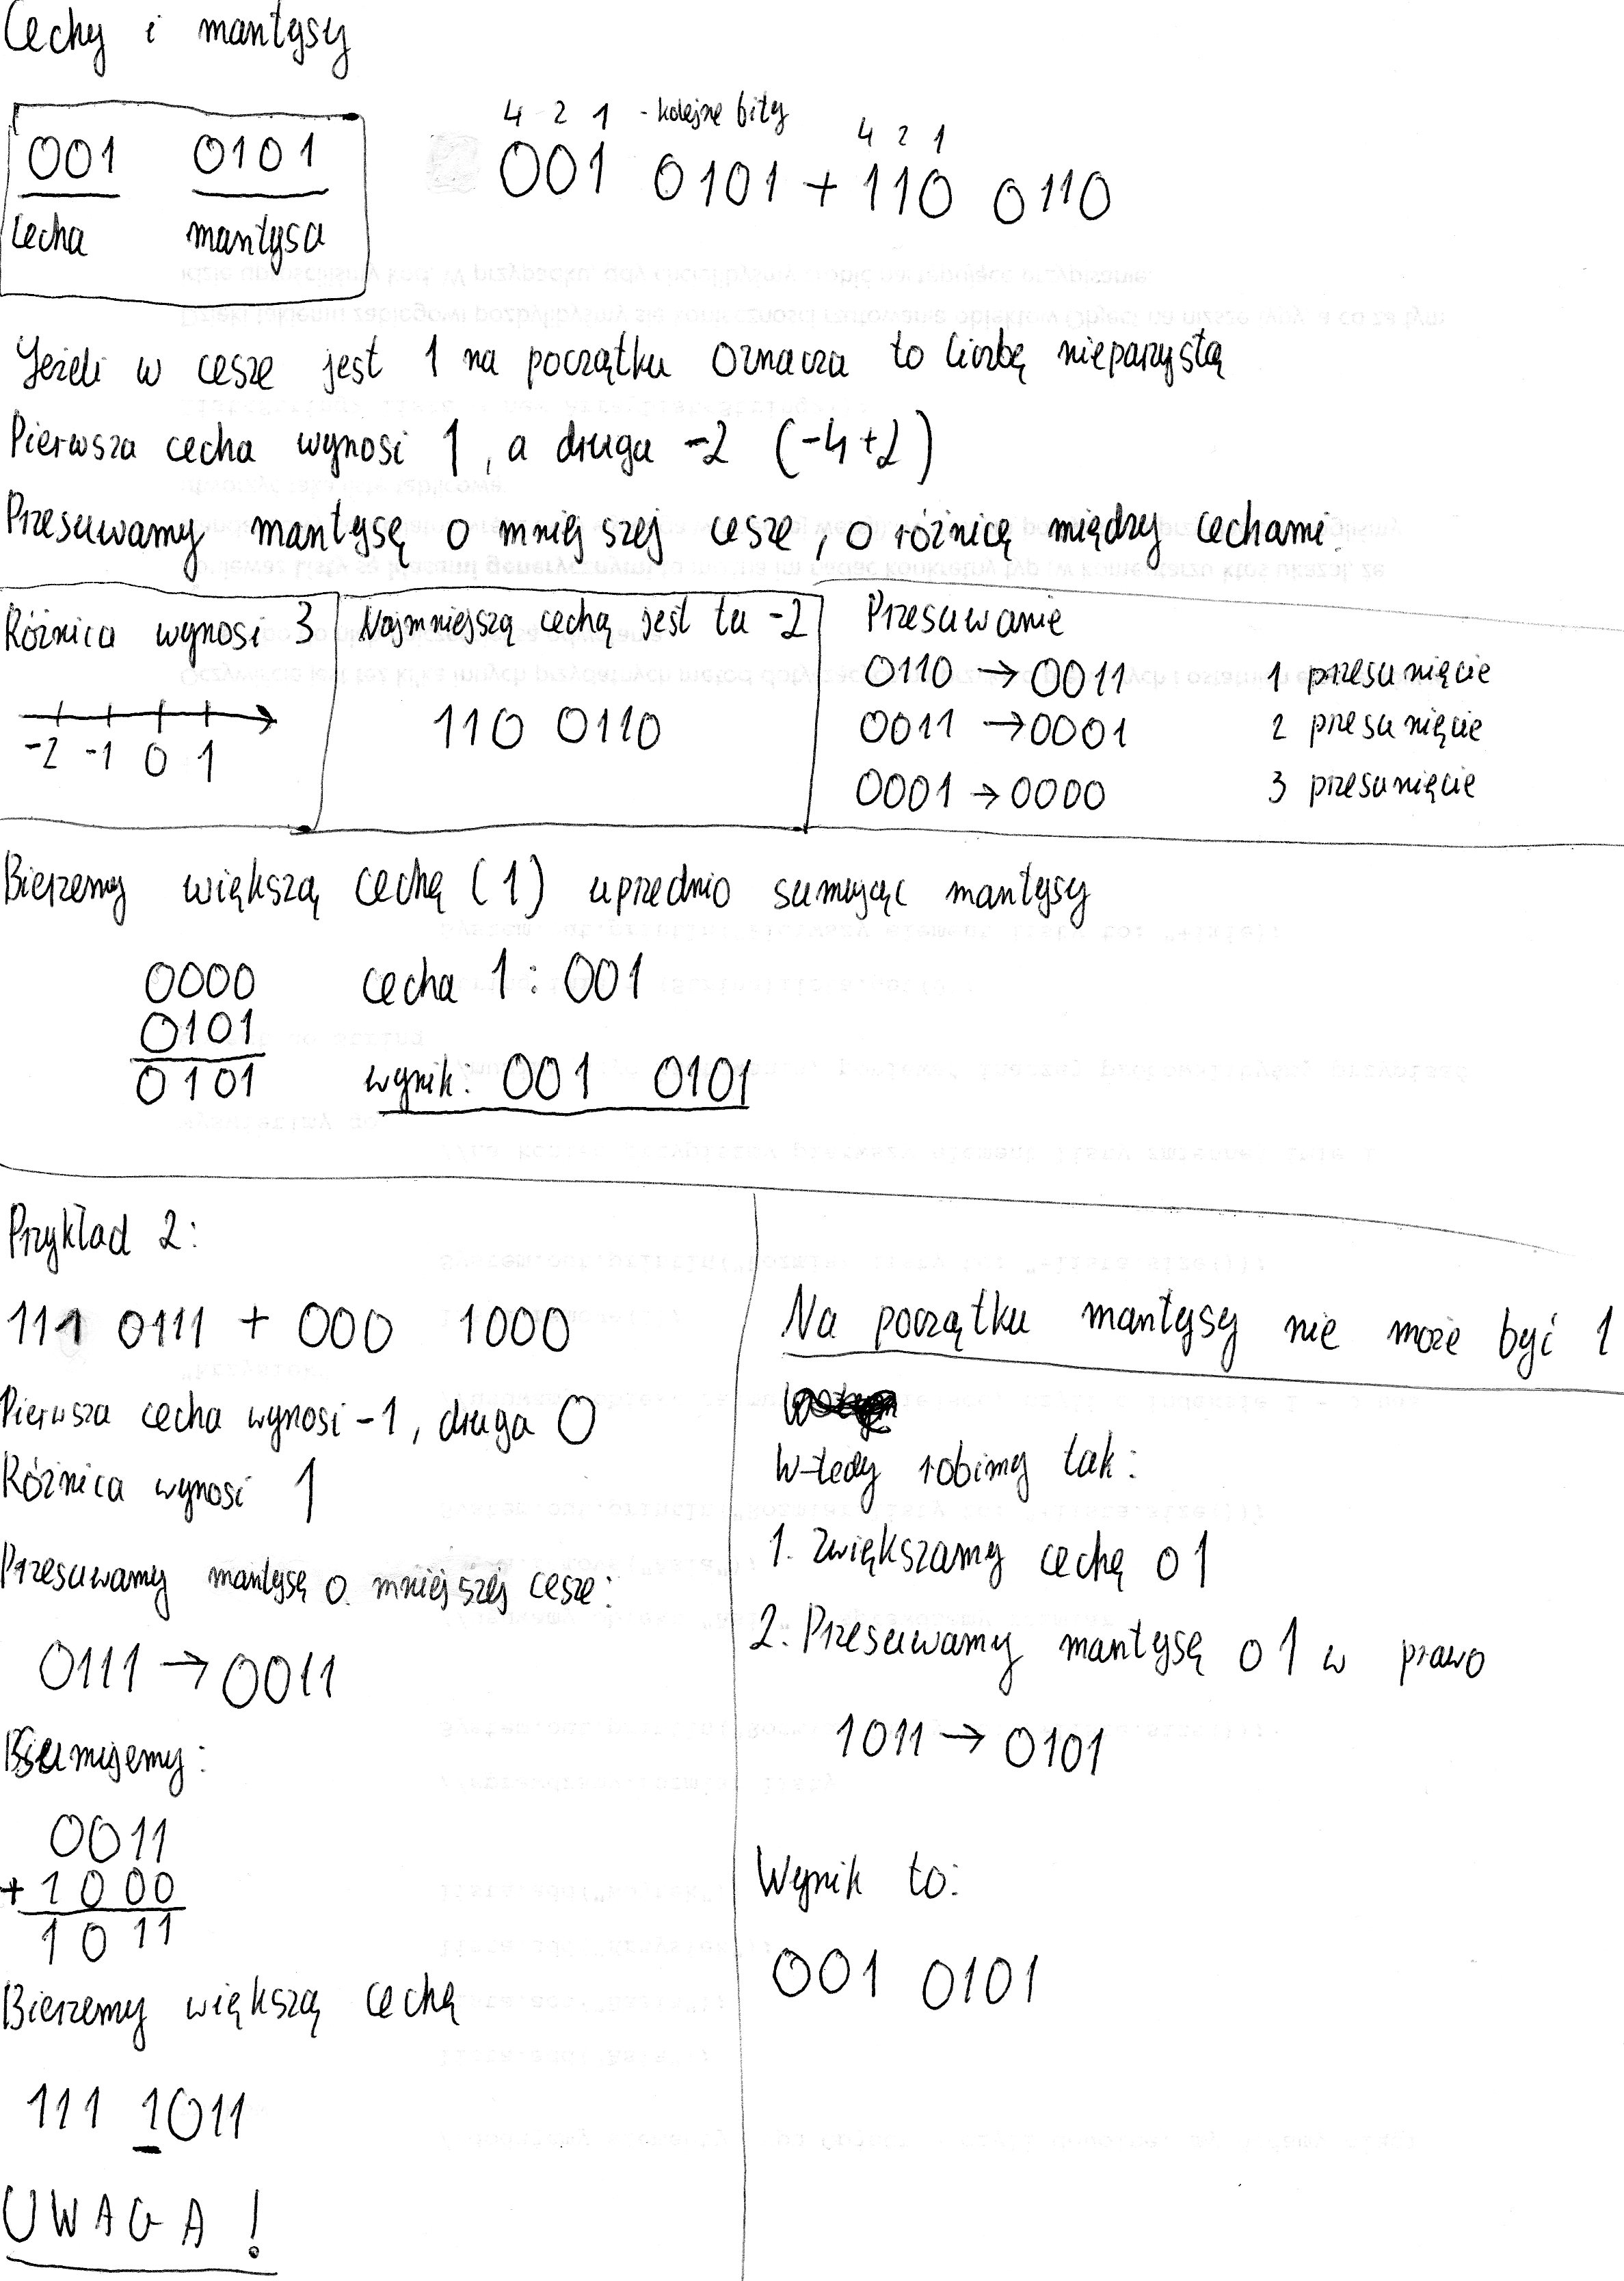 Cechy i mantysy
001 0101
cecha mantysa
4 2 1 - kolejne bity
4 2 1
001 0101 + 110 0110
Jeżeli w cesze jest 1 na początku oznacza to liczbę nieparzystą
Pierwsza cecha wynosi 1, a druga -2 (-4+2)
Przesuwamy mantysę o mniejszej cesze, o różnicę między cechami.
Różnica wynosi 3
-2 -1 0 1
Najmniejszą cechą jest tu -2
110 0110
Przesuwanie
0110 → 0011 1 przesunięcie
0011 → 0001 2 przesunięcie
0001 → 0000 3 przesunięcie
Bierzemy większą cechę (1) uprzednio sumując mantysy
0000
0101
0101
cecha 1: 001
wynik: 001 0101
Przykład 2:
111 0111 + 000 1000
Pierwsza cecha wynosi -1, druga 0
Różnica wynosi 1
Przesuwamy mantysę o mniejszej cesze:
0111 → 0011
Sumujemy:
0011
+ 1000
1011
Bierzemy większą cechę
111 1011
UWAGA!
Na początku mantysy nie może być 1
Wtedy robimy tak:
1. Zwiększamy cechę o 1
2. Przesuwamy mantysę o 1 w prawo
1011 → 0101
Wynik to:
001 0101